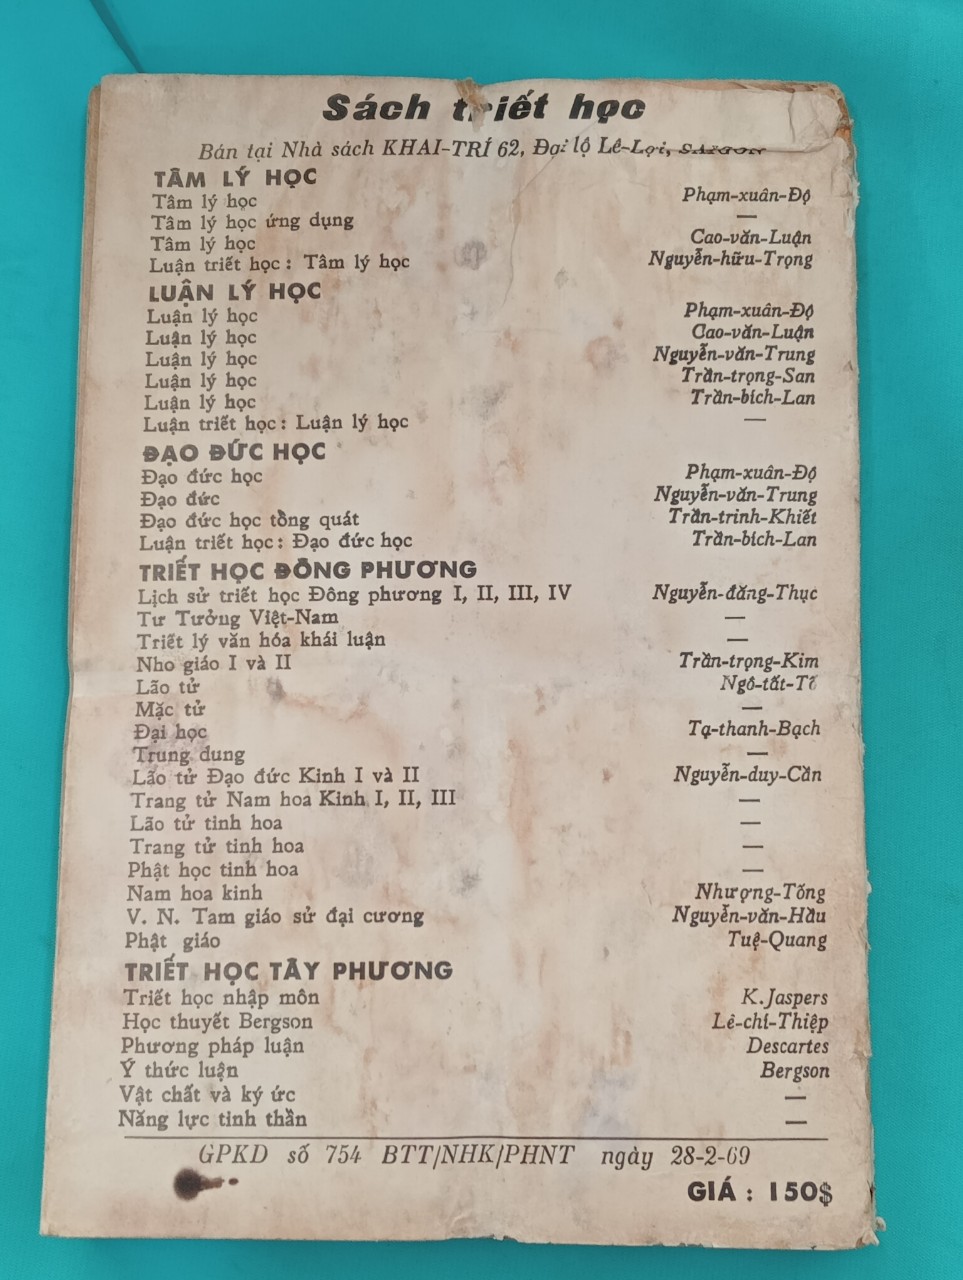 Sách triết học
Bán tại Nhà sách KHAI-TRÍ 62, Đại lộ Lê-Lợi, SAIGON
TÂM LÝ HỌC
Tâm lý học Phạm-xuân-Độ
Tâm lý học ứng dụng —
Tâm lý học Cao-văn-Luận
Luận triết học : Tâm lý học Nguyễn-hữu-Trọng
LUẬN LÝ HỌC
Luận lý học Phạm-xuân-Độ
Luận lý học Cao-văn-Luận
Luận lý học Nguyễn-văn-Trung
Luận lý học Trần-trọng-San
Luận lý học Trần-bích-Lan
Luận triết học : Luận lý học —
ĐẠO ĐỨC HỌC
Đạo đức học Phạm-xuân-Độ
Đạo đức Nguyễn-văn-Trung
Đạo đức học tổng quát Trần-trinh-Khiết
Luận triết học : Đạo đức học Trần-bích-Lan
TRIẾT HỌC ĐÔNG PHƯƠNG
Lịch sử triết học Đông phương I, II, III, IV Nguyễn-đăng-Thục
Tư Tưởng Việt-Nam —
Triết lý văn hóa khái luận —
Nho giáo I và II Trần-trọng-Kim
Lão tử Ngô-tất-Tố
Mặc tử —
Đại học Tạ-thanh-Bạch
Trung dung —
Lão tử Đạo đức Kinh I và II Nguyễn-duy-Cần
Trang tử Nam hoa Kinh I, II, III —
Lão tử tinh hoa —
Trang tử tinh hoa —
Phật học tinh hoa —
Nam hoa kinh Nhượng-Tống
V. N. Tam giáo sử đại cương Nguyễn-văn-Hầu
Phật giáo Tuệ-Quang
TRIẾT HỌC TÂY PHƯƠNG
Triết học nhập môn K.Jaspers
Học thuyết Bergson Lê-chí-Thiệp
Phương pháp luận Descartes
Ý thức luận Bergson
Vật chất và ký ức —
Năng lực tinh thần —
GPKD số 754 BTT/NHK/PHNT ngày 28-2-69
GIÁ : 150$